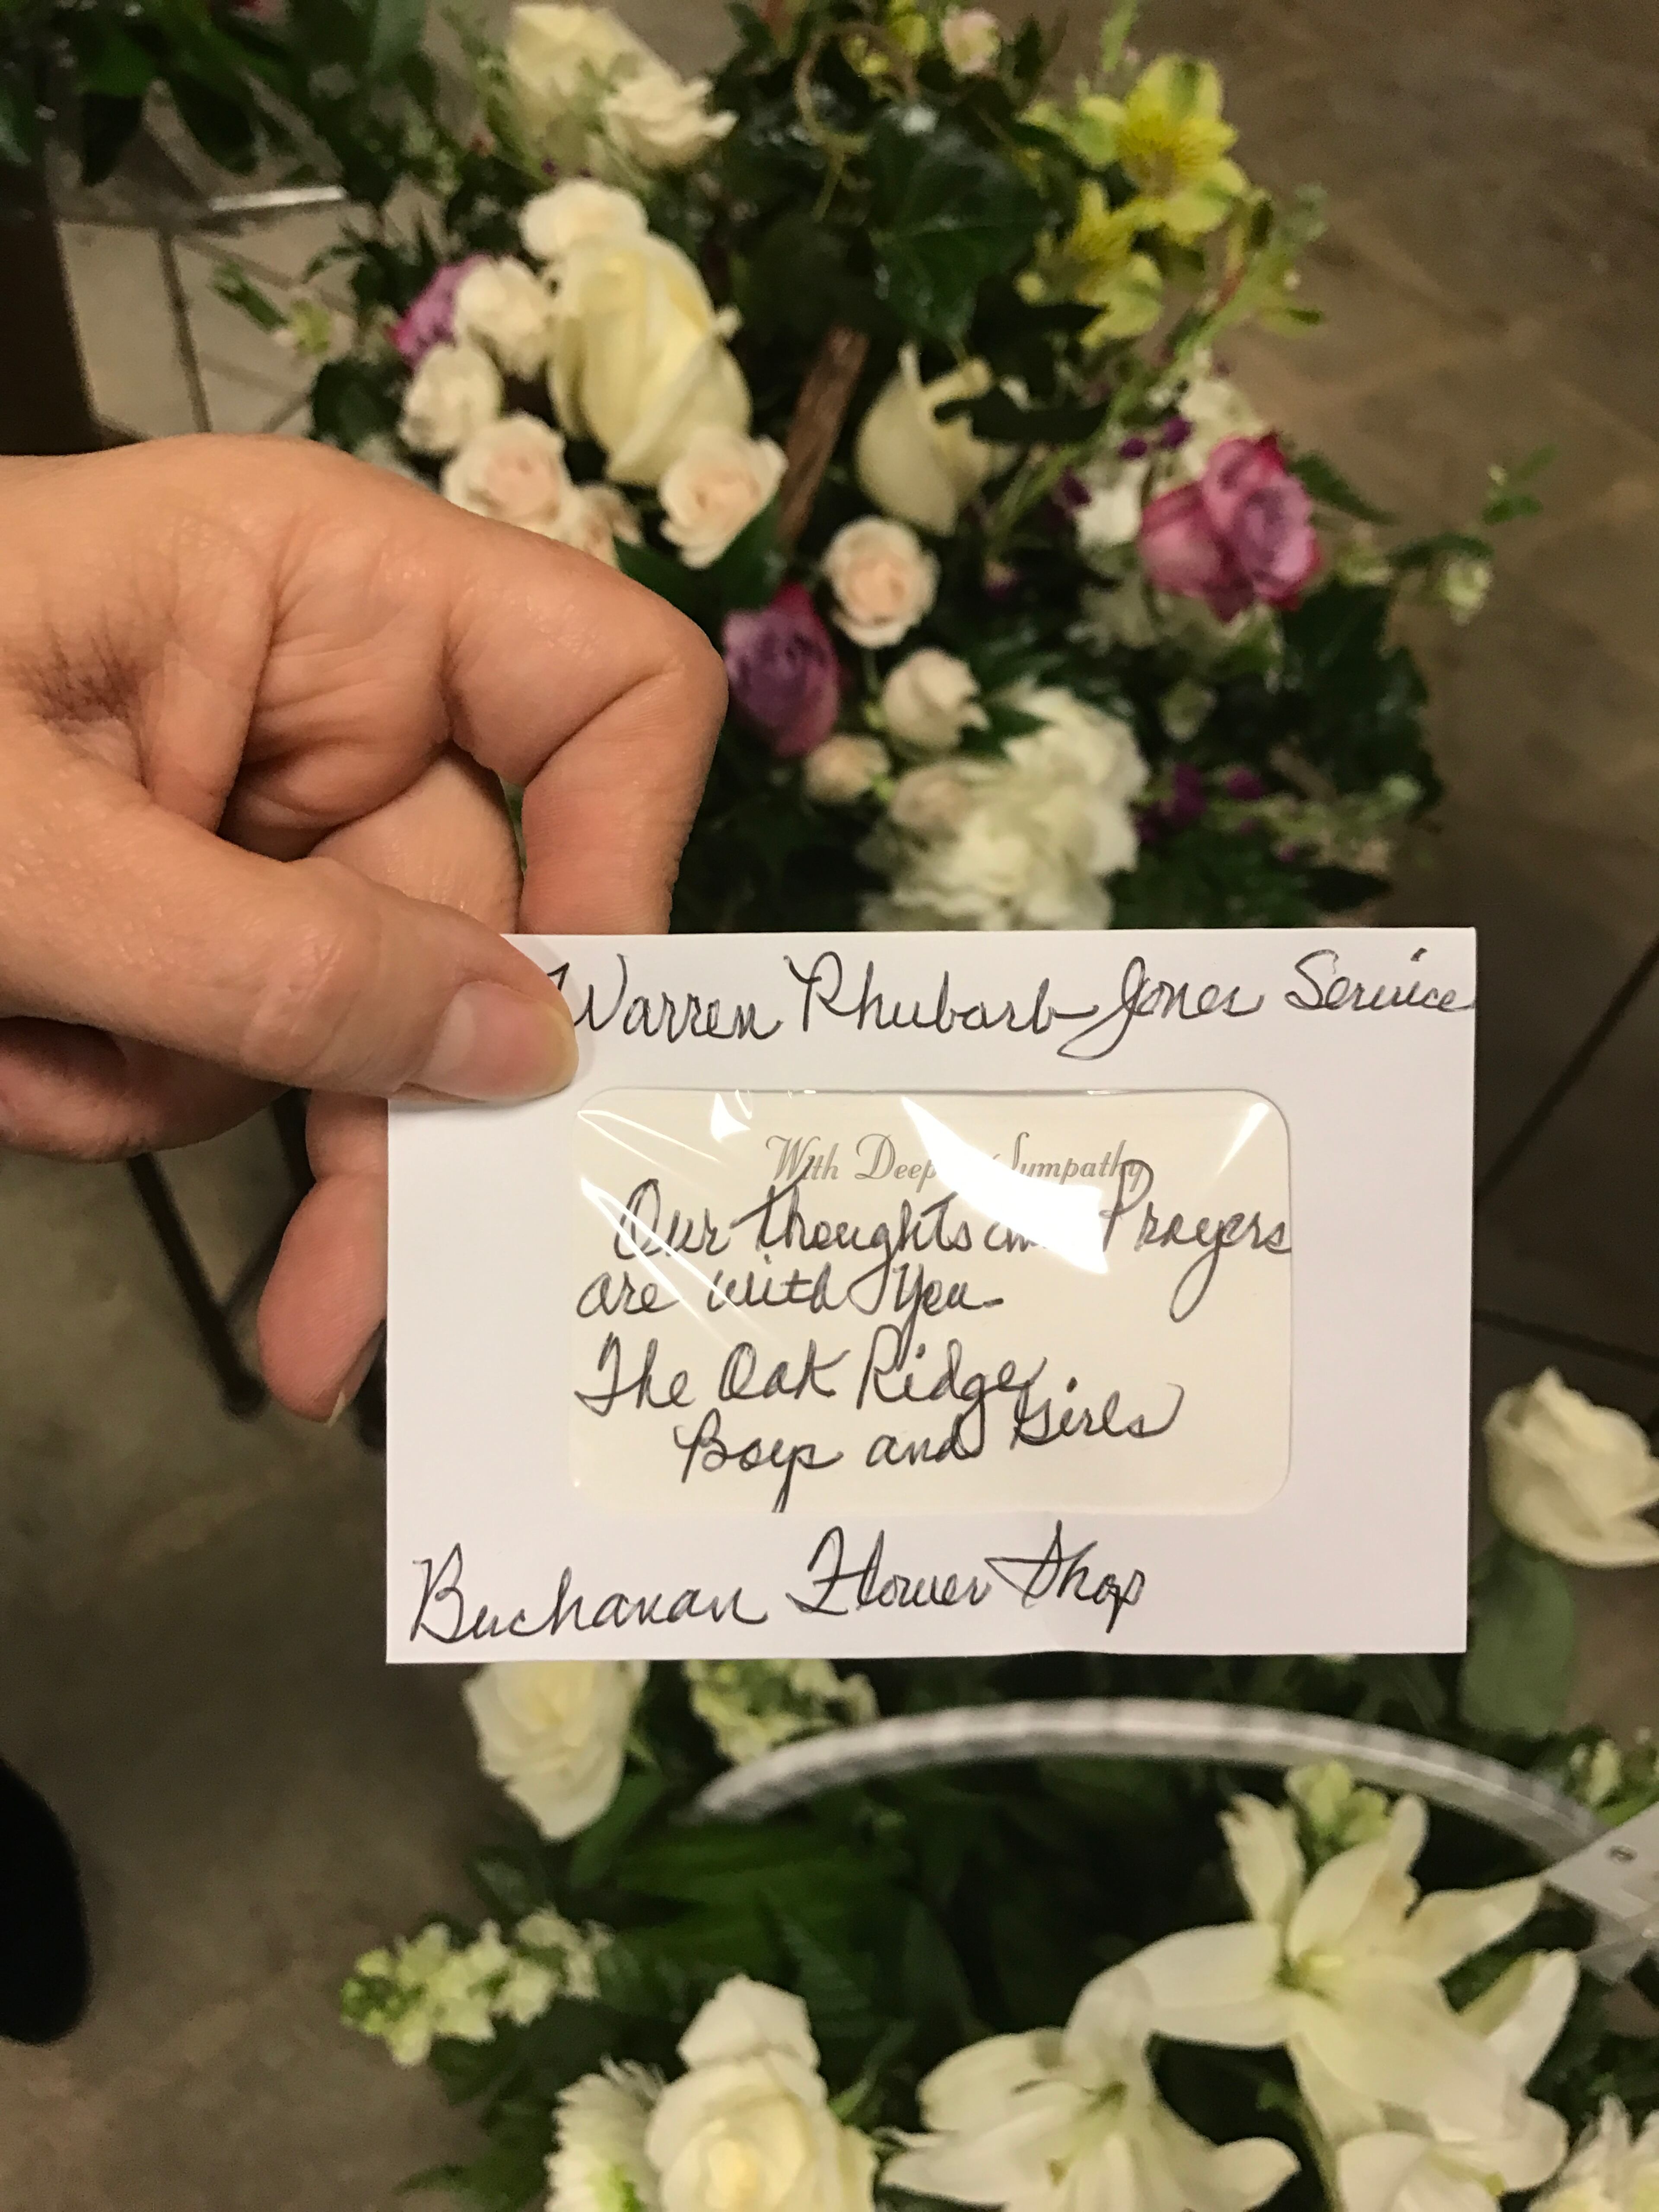 Warren Rhubarb Jones Service
With Deepest Sympathy
Our thoughts and Prayers
are with You
The Oak Ridge
Boys and Girls
Buchanan Flower Shop